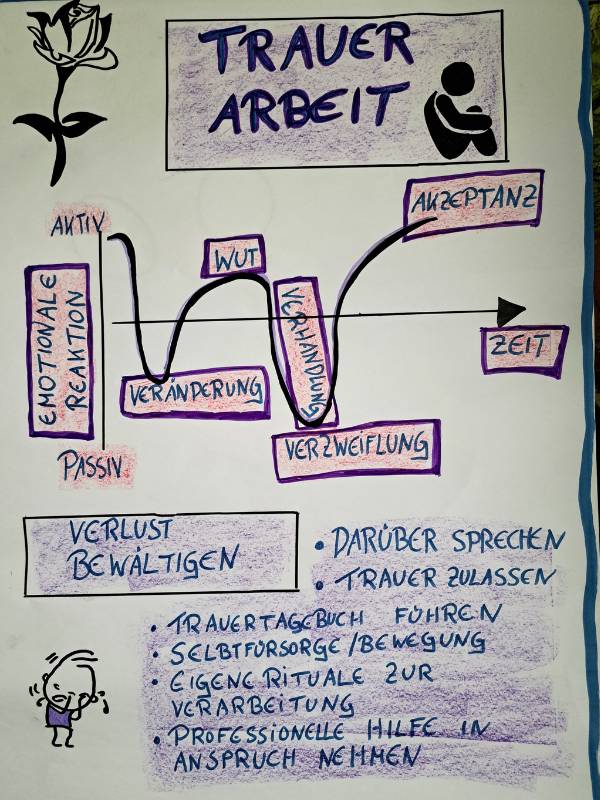 TRAUER
ARBEIT
AKZEPTANZ
AKTIV
WUT
EMOTIONALE
REAKTION
VERHANDLUNG
ZEIT
VERÄNDERUNG
VERZWEIFLUNG
PASSIV
VERLUST
BEWÄLTIGEN
• DARÜBER SPRECHEN
• TRAUER ZULASSEN
• TRAUERTAGEBUCH FÜHREN
• SELBTFÜRSORGE/BEWEGUNG
• EIGENE RITUALE ZUR
VERARBEITUNG
• PROFESSIONELLE HILFE IN
ANSPRUCH NEHMEN